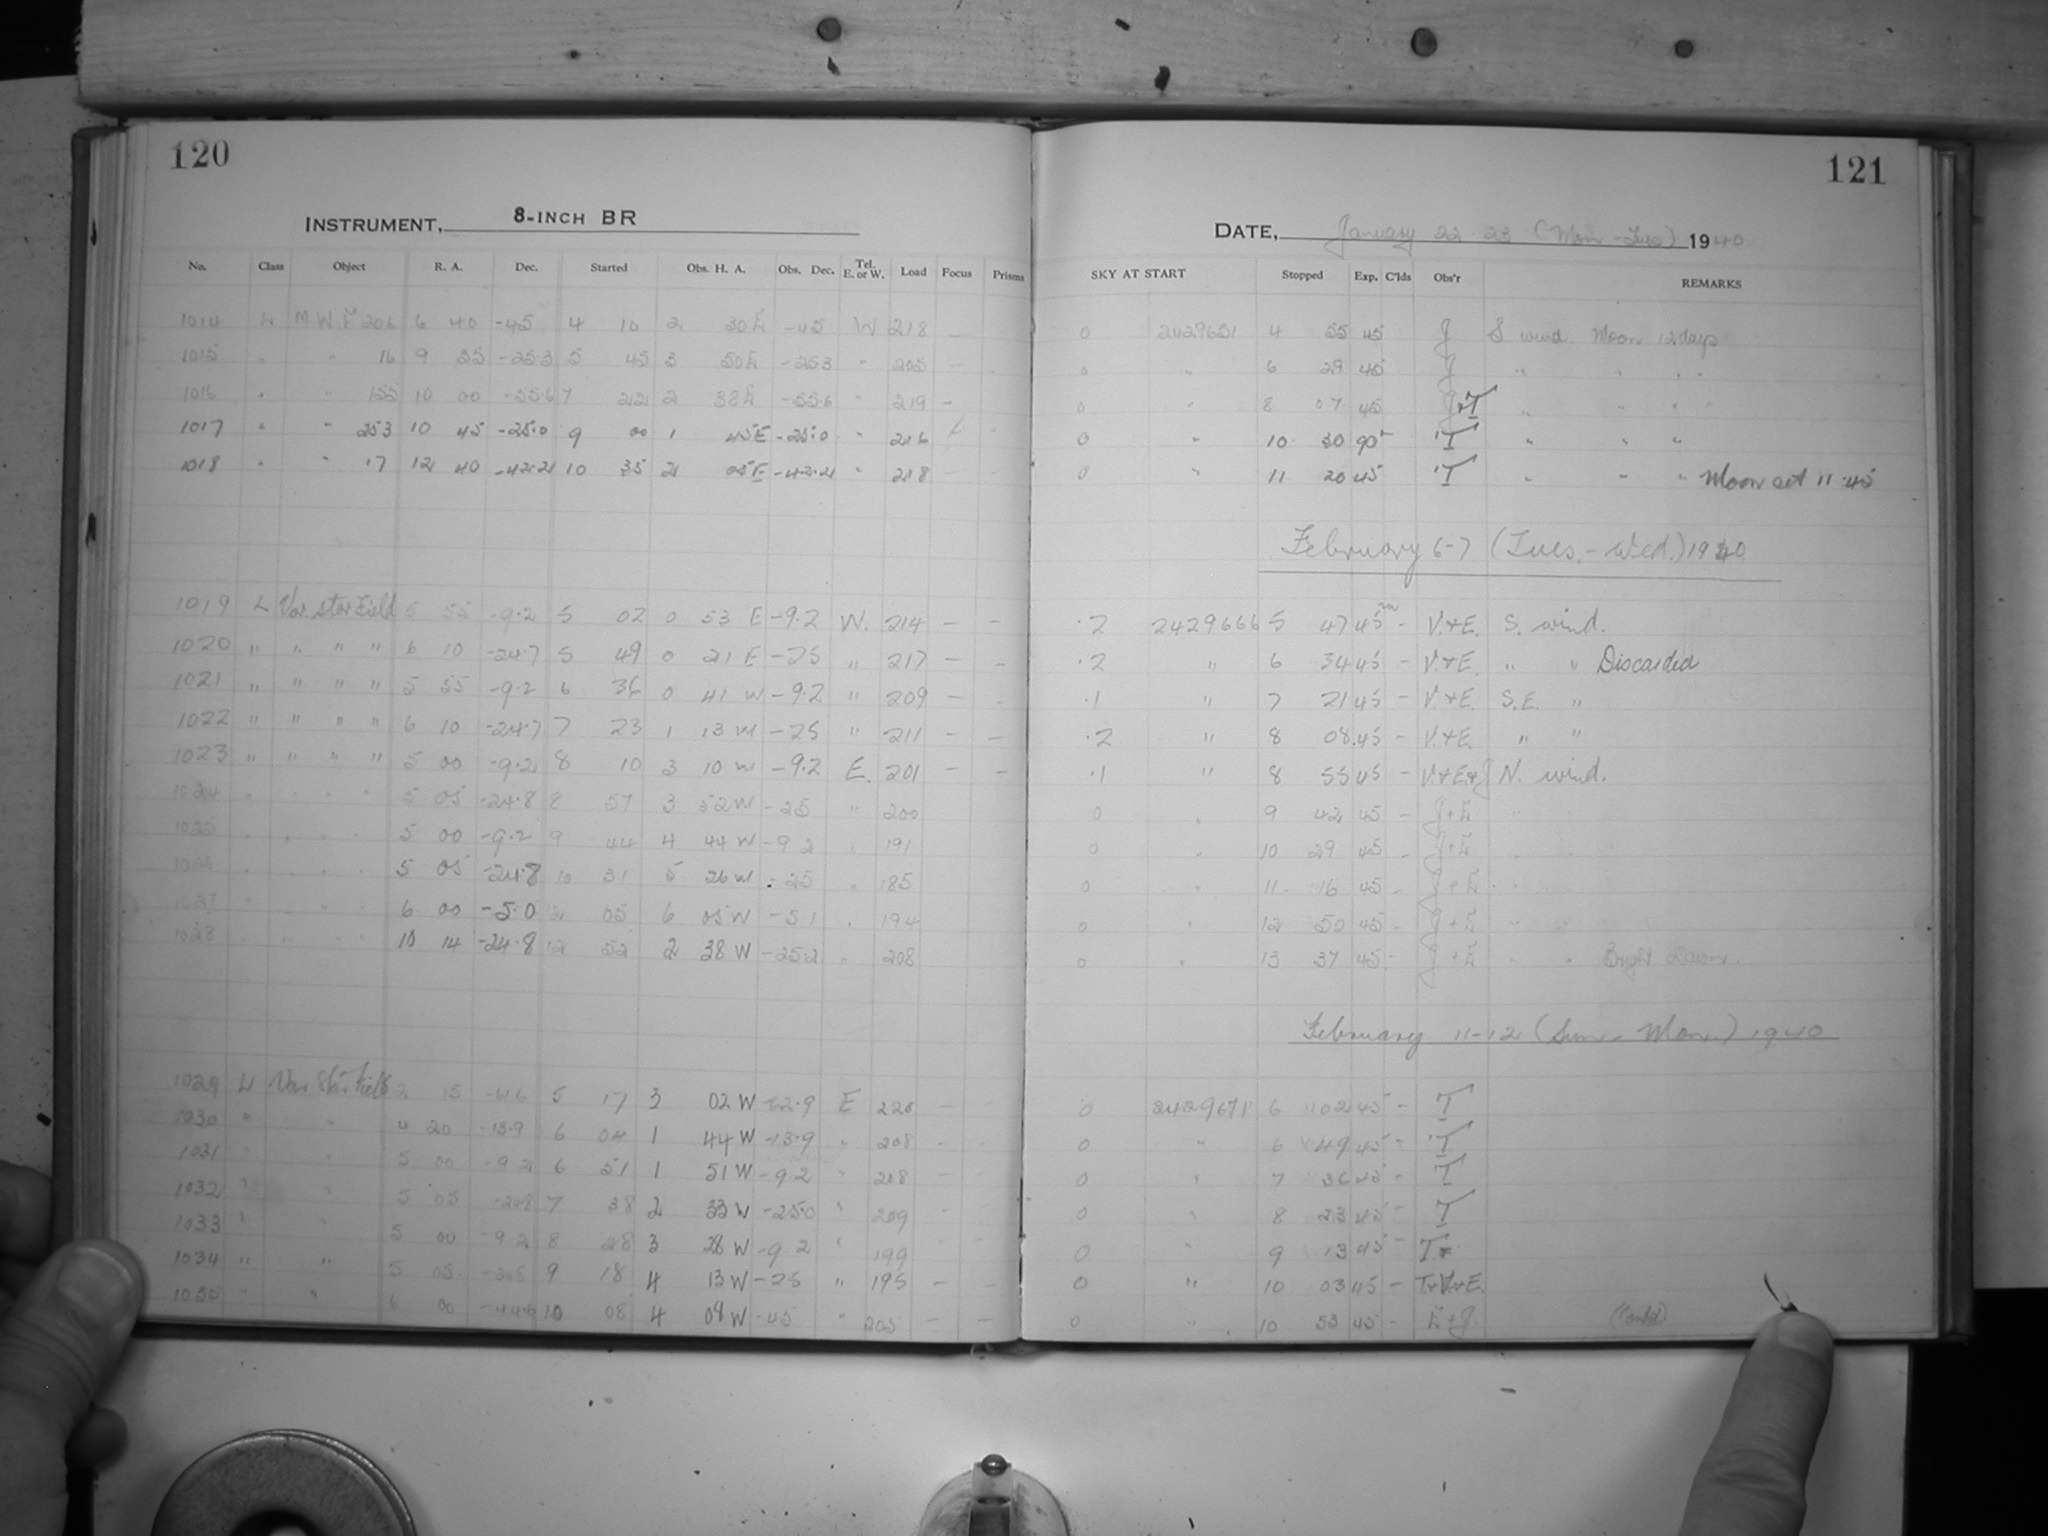 120
INSTRUMENT, 8-INCH BR
No. Class Object R. A. Dec. Started Obs. H. A. Obs. Dec. Tel. E. or W. Load Focus Prisms
1014 L M W F 206 6 40 -45 4 10 2 30 E -45 W 218 —
1015 " " 16 9 35 -25.3 5 45 3 50 E -25.3 " 205 —
1016 " " 155 10 00 -55.6 7 22 2 38 E -55.6 " 219 —
1017 " " 253 10 45 -25.0 9 00 1 45 E -25.0 " 216
1018 " " 17 12 40 -42.2 10 35 2 05 E -42.2 " 218
1019 L Var. star Field 5 55 -9.2 5 02 0 53 E -9.2 W. 214 — —
1020 " " " " 6 10 -24.7 5 49 0 21 E -25 " 217 — —
1021 " " " " 5 55 -9.2 6 36 0 41 W -9.2 " 209 — -
1022 " " " " 6 10 -24.7 7 23 1 13 W -25 " 211 — —
1023 " " " " 5 00 -9.2 8 10 3 10 W -9.2 E. 201 — —
1024 " " " " 5 05 -24.8 8 57 3 52 W -25 " 200
1025 " " " " 5 00 -9.2 9 44 4 44 W -9.2 " 191
1026 " " " " 5 05 -24.8 10 31 5 26 W -25 " 185
1027 " " " " 6 00 -5.0 12 05 6 05 W -5.1 " 194
1028 " " " " 10 14 -24.8 12 52 2 38 W -25.2 " 208
1029 L Var. Star Field 2 15 5 17 3 02 W E 220 —
1030 " " 4 20 -13.9 6 04 1 44 W -13.9 " 208 - -
1031 " " 5 00 -9.2 6 51 1 51 W -9.2 " 208 - -
1032 " " 5 05 7 38 2 33 W -25.0 " 209 - -
1033 " " 5 00 -9.2 8 28 3 28 W -9.2 " 199
1034 " " 5 05 9 18 4 13 W -25 " 195 — —
1035 " " 6 00 -44.6 10 08 4 08 W -45 " 205 — —
121
DATE, January 22-23 (Mon-Tues) 1940
SKY AT START Stopped Exp. C'lds Obs'r REMARKS
0 2429651 4 55 45 J S wind. Moon 12 days
0 " 6 29 45 J " " " "
0 " 8 07 45 J+T " " " "
0 " 10 30 90 T " " "
0 " 11 20 45 T " " " Moon set 11.45
February 6-7 (Tues.-Wed.) 1940
.2 2429666 5 47 45 - V.+E. S. wind.
.2 " 6 34 45 - V.+E. " " Discarded
.1 " 7 21 45 - V.+E. S.E. "
.2 " 8 08 45 - V.+E. " "
.1 " 8 55 45 - V.+E+J N. wind.
0 " 9 42 45 - J+E " "
0 " 10 29 45 - J+E " "
0 " 11 16 45 - J+E " "
0 " 12 50 45 - J+E " "
0 " 13 37 45 - J+E " " Bright Dawn.
February 11-12 (Sun.-Mon.) 1940
0 2429671 6 02 45 - T
0 " 6 49 45 - T
0 " 7 36 45 - T
0 " 8 23 45 - T
0 " 9 13 45 - T
0 " 10 03 45 - T+V.+E.
0 " 10 53 45 - E+J. (Contd)